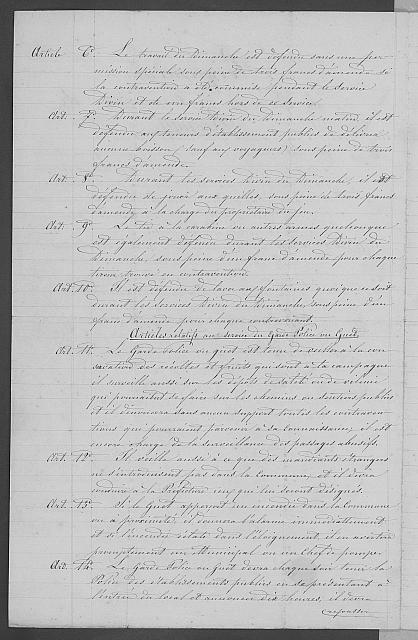 Article 6e. Le travail du Dimanche est défendu sans une per
mission spéciale sous peine de trois francs d'amende si
la contravention a été commise pendant le service
Divin et de un franc hors de ce service.
Art. 7e. Durant le service divin du Dimanche matin il est
défendu aux teneurs d'établissement publics de délivrer
aucune boisson (sauf aux voyageurs) sous peine de trois
francs d'amende.
Art. 8e. Durant les services divin du Dimanche, il est
défendu de jouer aux quilles, sous peine de trois francs
d'amende, à la charge du propriétaire du jeu.
Art. 9e. Le tir à la carabine ou autres armes quelconque
est également défendu durant les services divin du
Dimanche, sous peine d'un franc d'amende pour chaque
tireur trouvé en contravention.
Art. 10e. Il est défendu de laver aux fontaines quoique ce soit
durant les services divin du Dimanche, sous peine d'un
franc d'amende pour chaque contrevenant.
Articles relatifs au service du Garde Police ou Guet.
Art. 11e. Le Garde Police ou guet est tenu de veiller à la con
servation des récoltes et fruits qui sont à la campagne
il surveille aussi sur les dépôts de saleté ou de
qui pourraient se faire sur les chemins ou sentiers publics
et il dénoncera sans aucun support toutes les contraven
tions qui pourraient parvenir à sa connaissance, il est
encore chargé de la surveillance des passages abusifs.
Art. 12e. Il veille aussi à ce que des mandiants étrangers
ne s'introduisent pas dans la Commune, et il devra
conduire à la Préfecture ceux qui lui seront désignés.
Art. 13e. Si le Guet apperçoit un incendie dans la Commune
ou à proximité, il donnera l'alarme immédiattement
et si l'incendie éclate dans l'éloignement, il en avertira
promptement un Municipal ou un Chef de pompe.
Art. 14e. Le Garde Police ou Guet devra chaque soir tenir la
Police des établissements publics en se présentant à
l'entrée du local et à dix heures, il devra